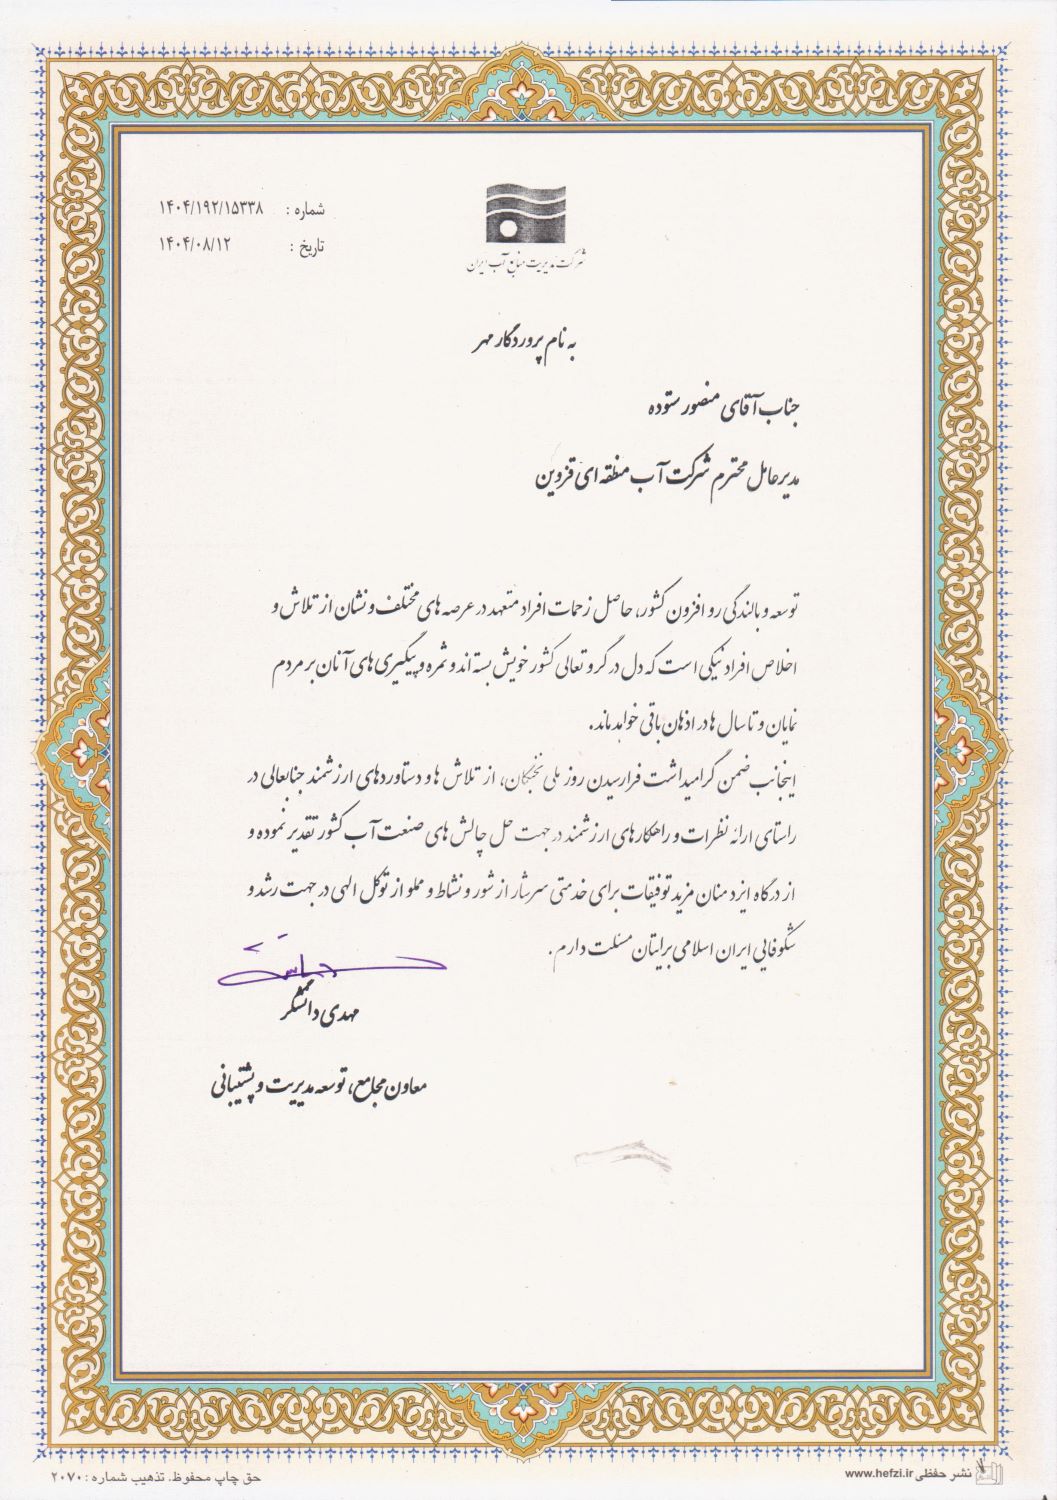 شرکت مدیریت منابع آب ایران
شماره : ۱۴۰۴/۱۹۲/۱۵۳۳۸
تاریخ : ۱۴۰۴/۰۸/۱۲
به نام پروردگار مهر
جناب آقای منصور ستوده
مدیرعامل محترم شرکت آب منطقه ای قزوین
توسعه و بالندگی رو افزون کشور، حاصل زحمات افراد متعهد در عرصه های مختلف و نشان از تلاش و
اخلاص افراد نیکی است که دل در گرو تعالی کشور خویش بسته اند و ثمره و پیگیری های آنان بر مردم
نمایان و تا سال ها در اذهان باقی خواهد ماند.
اینجانب ضمن گرامیداشت فرارسیدن روز ملی نخبگان، از تلاش ها و دستاوردهای ارزشمند جنابعالی در
راستای ارائه نظرات و راهکارهای ارزشمند در جهت حل چالش های صنعت آب کشور تقدیر نموده و
از درگاه ایزد منان مزید توفیقات برای خدمتی سرشار از شور و نشاط و مملو از توکل الهی در جهت رشد و
شکوفایی ایران اسلامی برایتان مسئلت دارم.
مهدی دانشگر
معاون مجامع، توسعه مدیریت و پشتیبانی
نشر حفظی www.hefzi.ir
حق چاپ محفوظ. تذهیب شماره : ۲۰۷۰